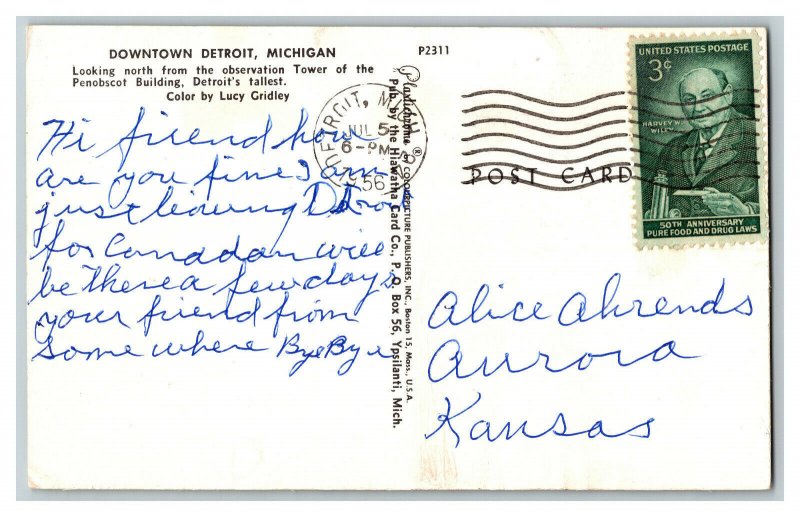 DOWNTOWN DETROIT, MICHIGAN
Looking north from the observation Tower of the
Penobscot Building, Detroit's tallest.
Color by Lucy Gridley
P2311
Hi friend how
are you fine I am
just leaving Detroit
for Canada an will
be there a few days
your friend from
some where Bye Bye
Plastichrome ® by COLOURPICTURE PUBLISHERS, INC., Boston 15, Mass., U.S.A.
Pub. by the Hiawatha Card Co., P. O. Box 56, Ypsilanti, Mich.
DETROIT, MICH.
JUL 5
6-PM
1956
POST CARD
UNITED STATES POSTAGE
3¢
HARVEY W.
WILEY
50TH ANNIVERSARY
PURE FOOD AND DRUG LAWS
Alice Ahrends
Aurora
Kansas